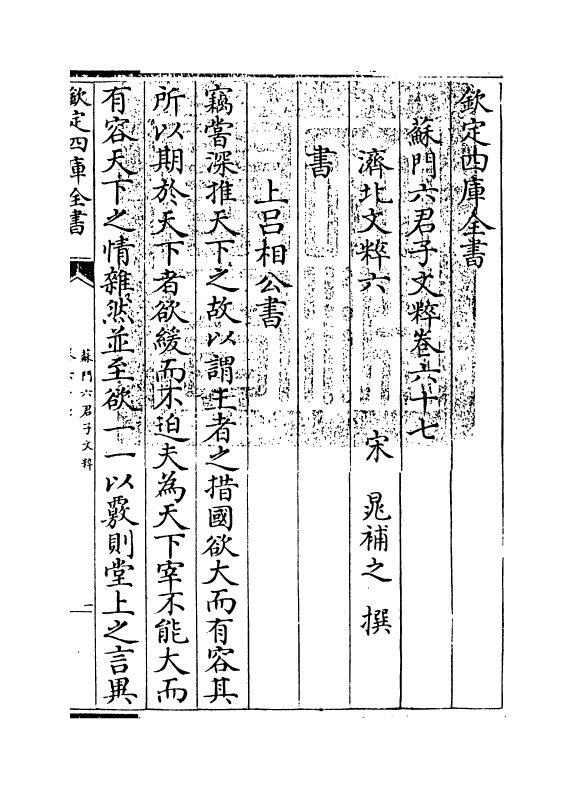 欽定四庫全書
蘇門六君子文粹卷六十七
濟北文粹六　宋　晁補之　撰
書
上呂相公書
竊嘗深推天下之故以謂王者之措國欲大而有容其
所以期於天下者欲緩而不迫夫為天下宰不能大而
有容天下之情雜然並至欲一一以覈則堂上之言異
欽定四庫全書
蘇門六君子文粹